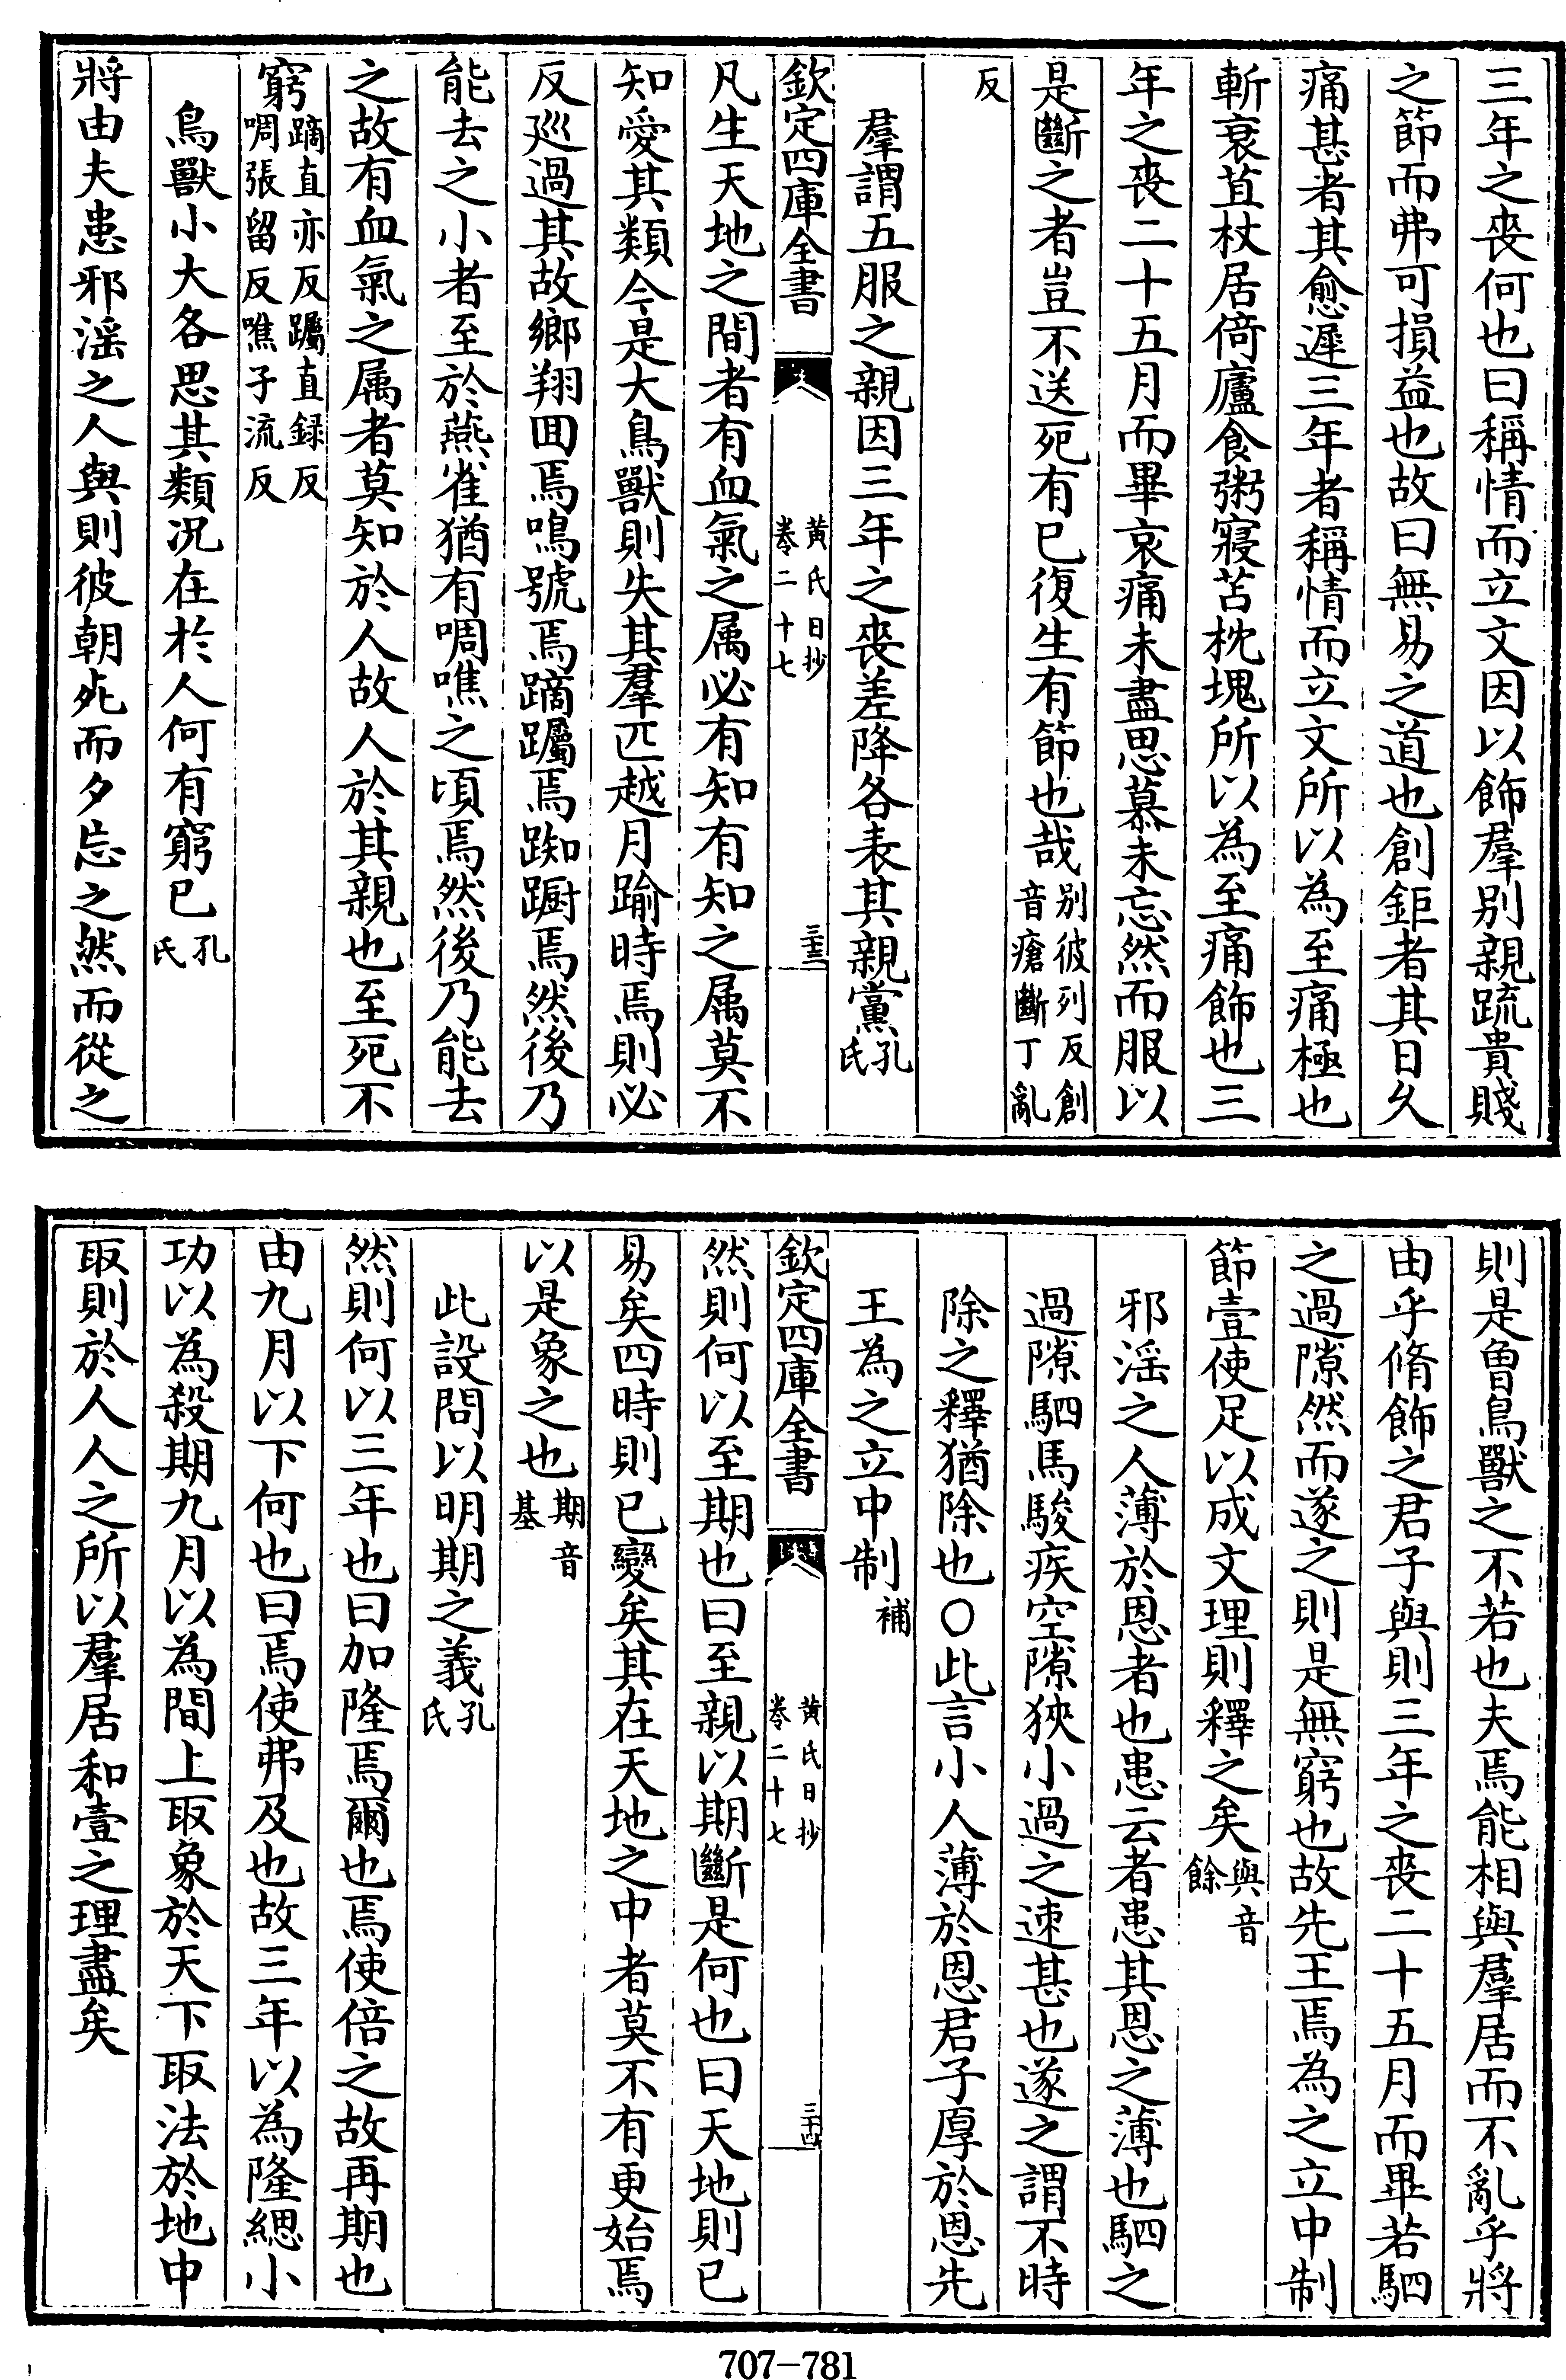 三年之喪何也曰稱情而立文因以飾羣别親疏貴賤
之節而弗可損益也故曰無易之道也創鉅者其日乆
痛甚者其愈遲三年者稱情而立文所以為至痛極也
斬衰苴杖居倚廬食粥寢苫枕塊所以為至痛飾也三
年之喪二十五月而畢哀痛未盡思慕未忘然而服以
是斷之者豈不送死有已復生有節也哉别彼列反創音瘡斷丁亂
反
羣謂五服之親因三年之喪差降各表其親黨孔氏
欽定四庫全書
黄氏日抄
卷二十七
三十三
凡生天地之間者有血氣之属必有知有知之属莫不
知愛其類今是大鳥獸則失其羣匹越月踰時焉則必
反廵過其故鄉翔囬焉鳴號焉蹢躅焉踟蹰焉然後乃
能去之小者至於燕雀猶有啁噍之頃焉然後乃能去
之故有血氣之属者莫知於人故人於其親也至死不
窮蹢直亦反躅直録反啁張留反噍子流反
鳥獸小大各思其類况在於人何有窮已孔氏
將由夫患邪淫之人與則彼朝死而夕忘之然而從之
則是曾鳥獸之不若也夫焉能相與羣居而不亂乎將
由乎脩飾之君子與則三年之喪二十五月而畢若駟
之過隙然而遂之則是無窮也故先王焉為之立中制
節壹使足以成文理則釋之矣與音餘
邪淫之人薄於恩者也患云者患其恩之薄也駟之
過隙駟馬駿疾空隙狹小過之速甚也遂之謂不時
除之釋猶除也○此言小人薄於恩君子厚於恩先
王為之立中制補
欽定四庫全書
黄氏日抄
卷二十七
三十四
然則何以至期也曰至親以期斷是何也曰天地則已
易矣四時則已變矣其在天地之中者莫不有更始焉
以是象之也期音基
此設問以明期之義孔氏
然則何以三年也曰加隆焉爾也焉使倍之故再期也
由九月以下何也曰焉使弗及也故三年以為隆緦小
功以為殺期九月以為間上取象於天下取法於地中
取則於人人之所以羣居和壹之理盡矣
707-781